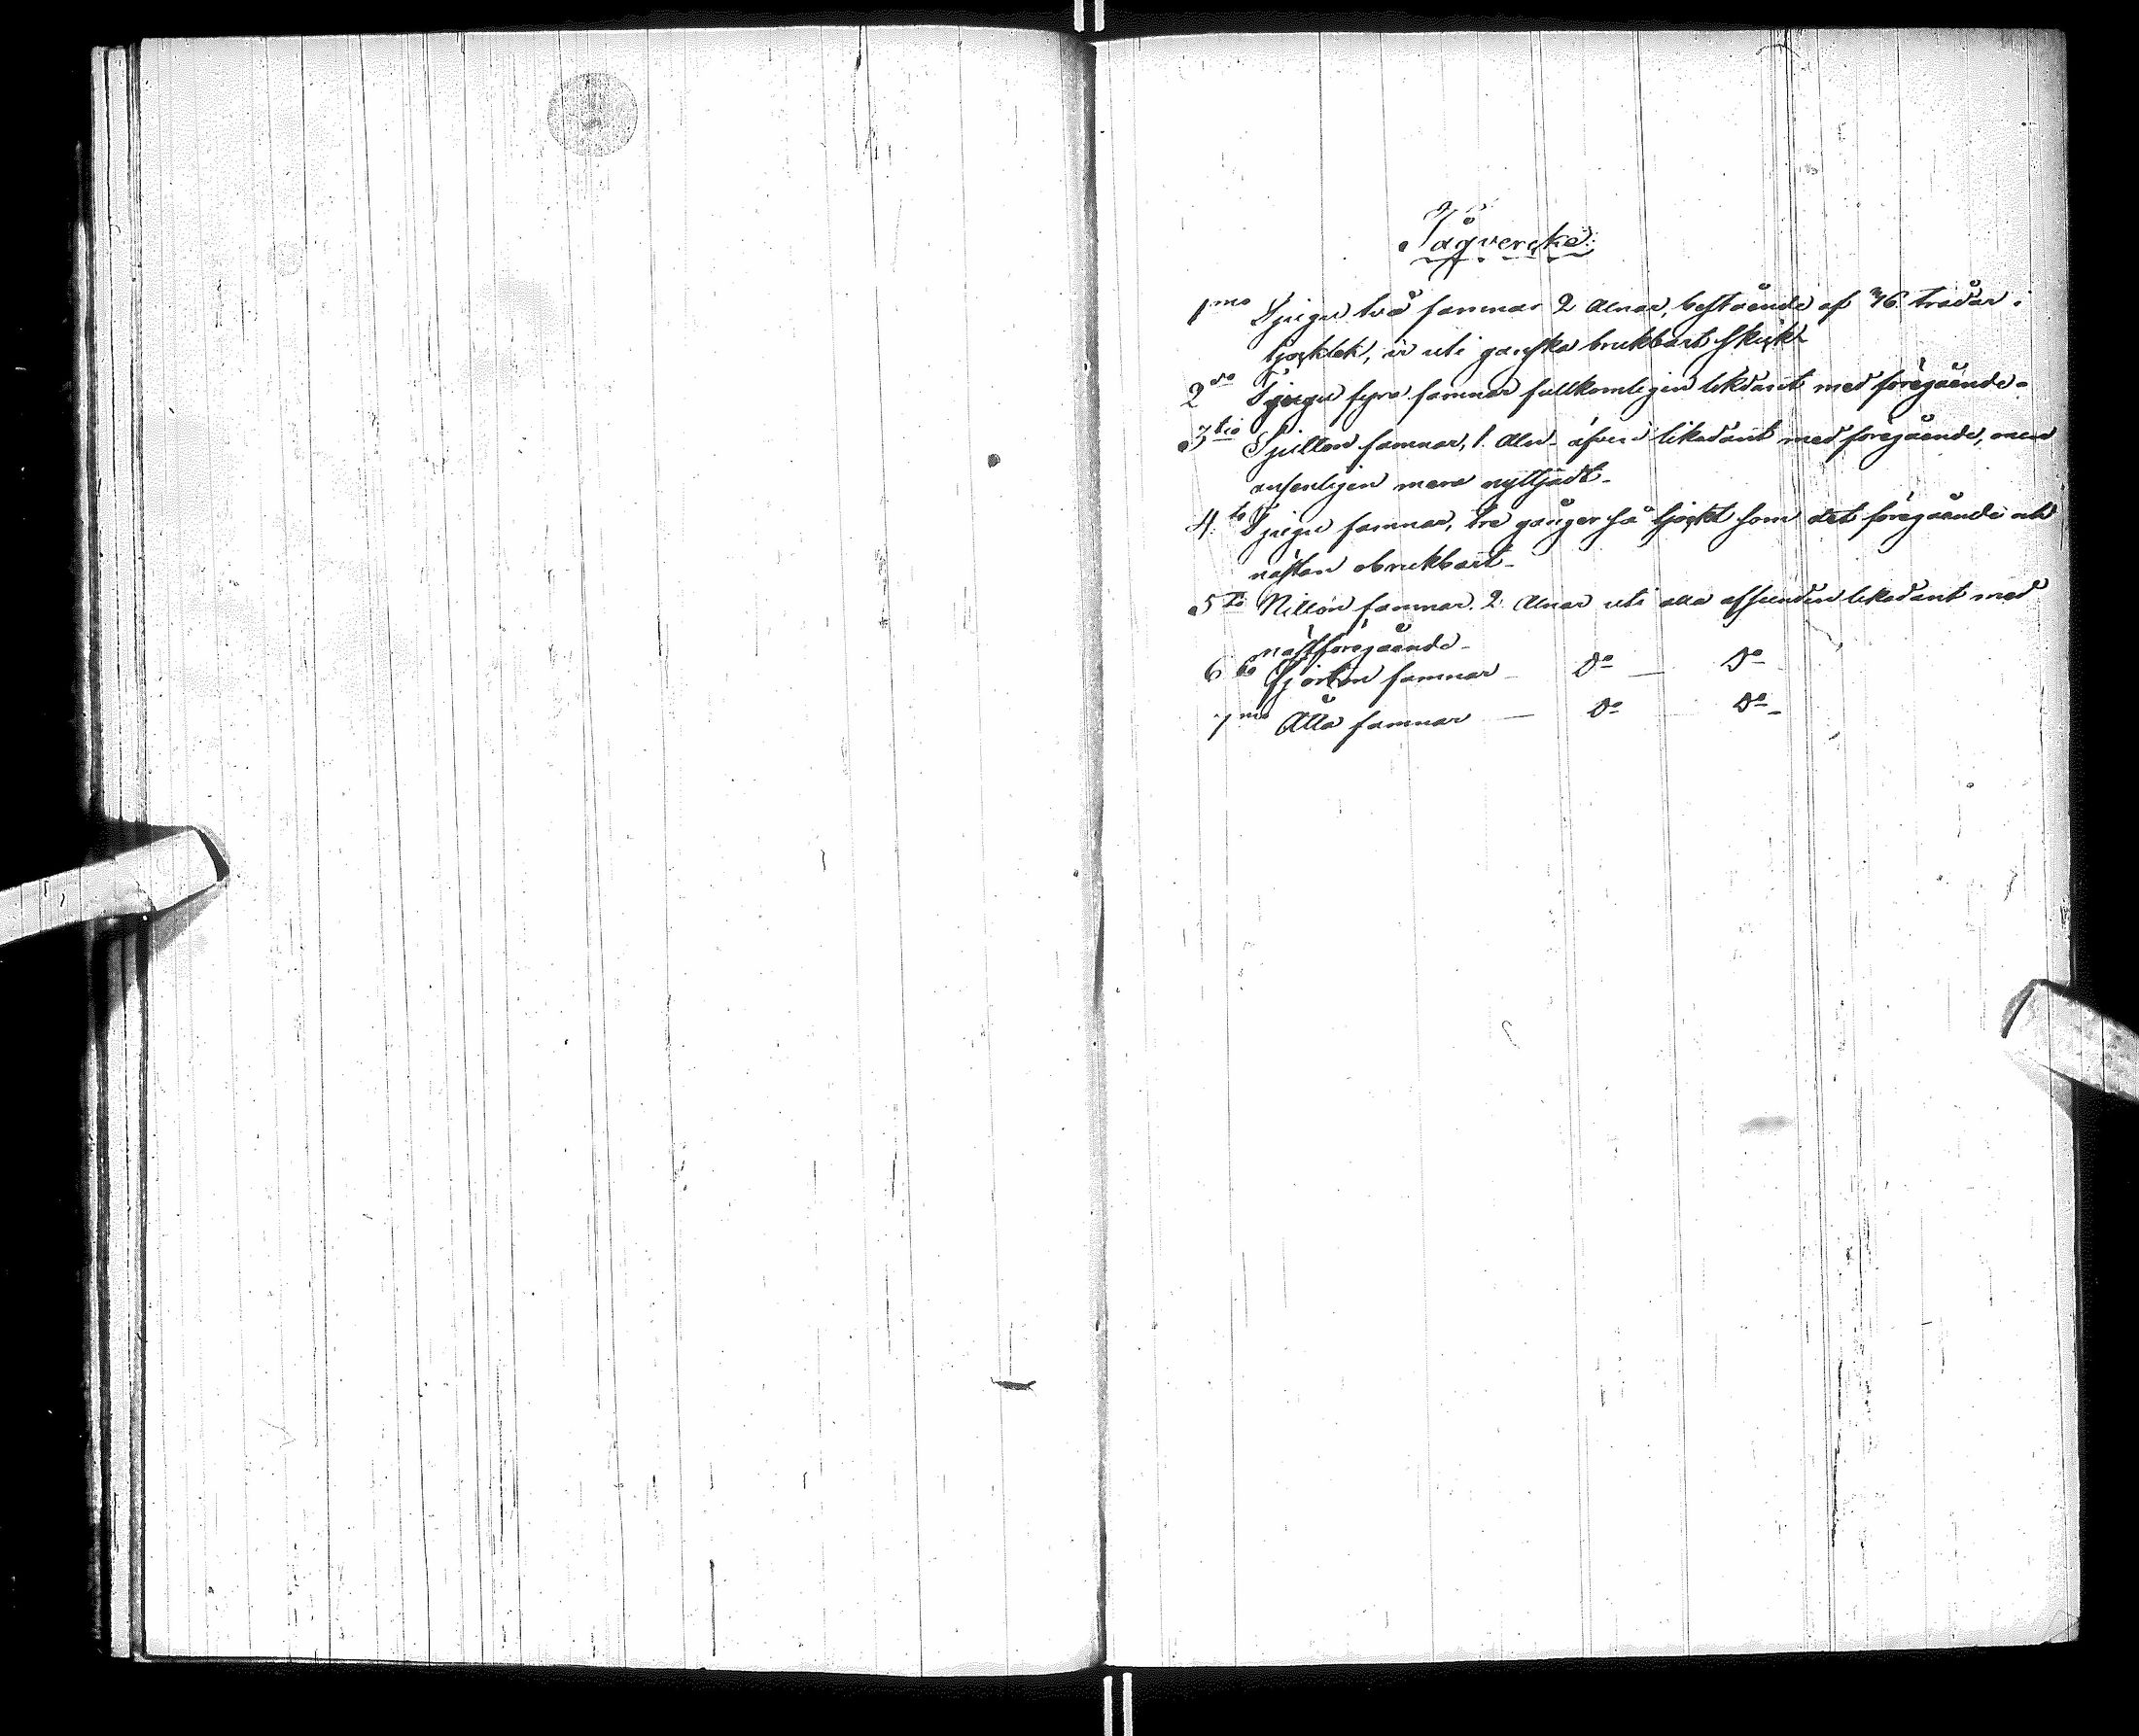 Tågvercke:
1mo Tjugu två famnar 2 Alnar, bestående af 46 trådar i
tjocklek, är uti ganska brukbart skick
2do Tjugu fyra famnar fullkomligen likdant med föregående.
3tio Sjutton famnar, 1. Aln. äfven likadant med föregående, men
ansenligen mera nyttjadt.
4to Tjugu famnar, tre gånger så tjockt som det föregående och
nästan obrukbart.
5to Nitton famnar. 2 Alnar uti alla afseenden likadant med
nästföregående.
6to Fjorton famnar — Do — Do
7mo Åtta famnar — Do Do